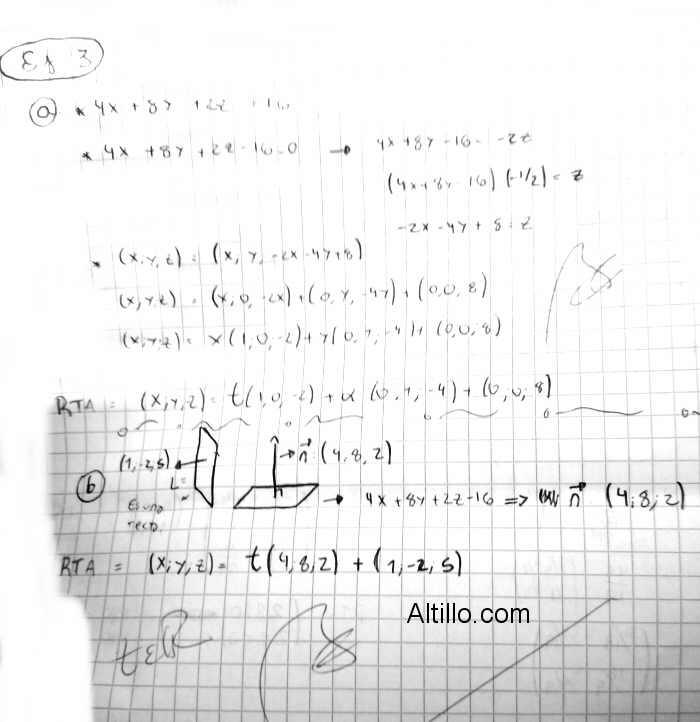 Ej 3
a) * 4x + 8y + 2z = 16
* 4x + 8y + 2z - 16 = 0 → 4x + 8y - 16 = -2z
(4x + 8y - 16) (-1/2) = z
-2x - 4y + 8 = z
* (x, y, z) = (x, y, -2x - 4y + 8)
(x, y, z) = (x, 0, -2x) + (0, y, -4y) + (0, 0, 8)
(x, y, z) = x(1, 0, -2) + y(0, 1, -4) + (0, 0, 8)
RTA = (x, y, z) = t(1, 0, -2) + α (0, 1, -4) + (0, 0, 8)
b) (1, -2, 5) L = → n⃗ : (4, 8, 2)
Es una recta. → 4x + 8y + 2z - 16 => n⃗ (4; 8; 2)
RTA = (x; y, z) = t(4, 8, 2) + (1, -2, 5)
Altillo.com
t ∈ R